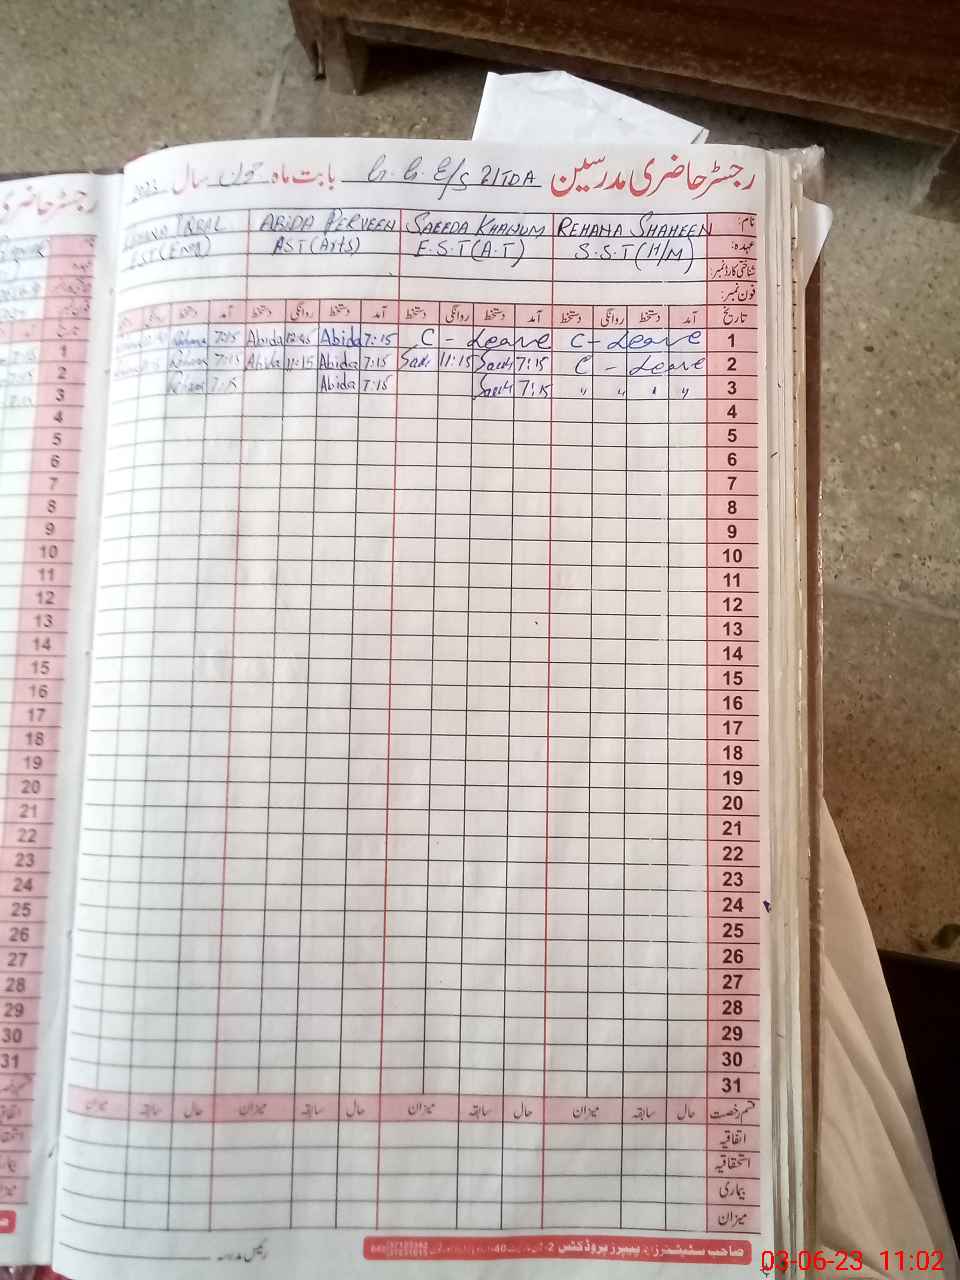 رجسٹر حاضری مدرسین G.G.E/S 21TDA بابت ماہ جون سال 2023
نام: REHANA SHAHEEN SAEEDA KHANUM ABIDA PERVEEN IQBAL
عہدہ: S.S.T (H/M) E.S.T (A.T) AST (Arts) EST (Eng)
شناختی کارڈ نمبر:
فون نمبر:
تاریخ آمد دستخط روانگی دستخط آمد دستخط روانگی دستخط آمد دستخط روانگی دستخط آمد دستخط روانگی دستخط
1 C - Leave C - Leave 7:15 Abida 12:45 Abida 7:15
2 C - Leave 7:15 11:15 7:15 Abida 11:15 Abida 7:15
3 " " " " 7:15 7:15 Abida 7:15
4
5
6
7
8
9
10
11
12
13
14
15
16
17
18
19
20
21
22
23
24
25
26
27
28
29
30
31
قسم رخصت حال سابقہ میزان حال سابقہ میزان حال سابقہ میزان حال سابقہ میزان
اتفاقیہ
استحقاقیہ
بیماری
میزان
رئیس مدرسہ
صاحب سٹیشنرز اینڈ پیپرز پروڈکٹس
رجسٹر حاضری
تاریخ
1
2
3
4
5
6
7
8
9
10
11
12
13
14
15
16
17
18
19
20
21
22
23
24
25
26
27
28
29
30
31
03-06-23 11:02